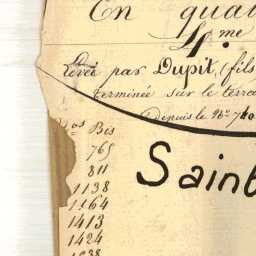 En quat
4.me
Levée par Dupit, (fils
terminée sur le terra
Depuis le N.o
Nos Bis
765
811
1138
1164
1413
1424
Saint